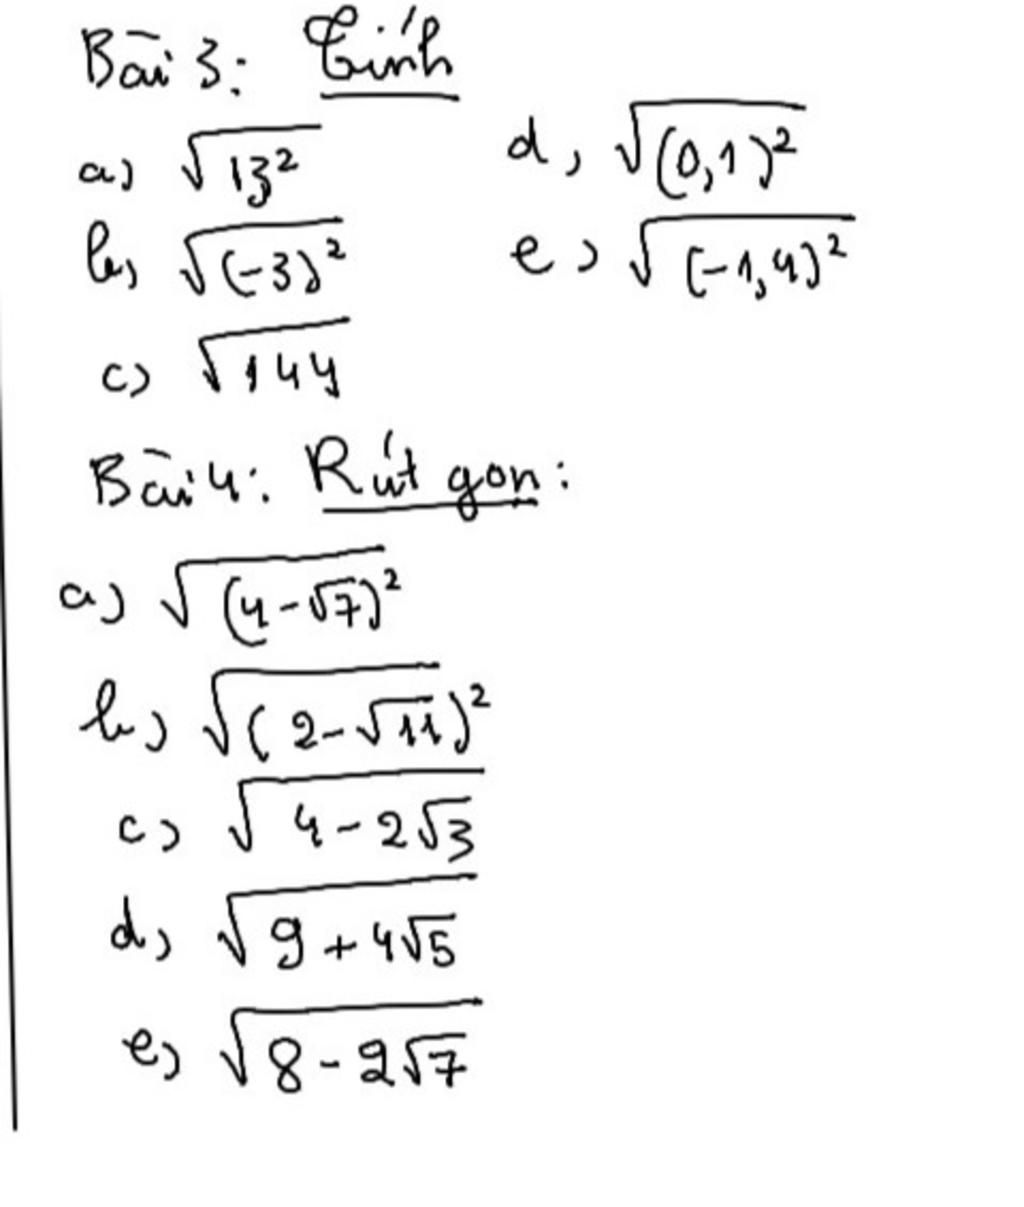 Bài 3: Tính
a) √13²
b, √(-3)²
c) √144
d, √(0,1)²
e) √(-1,4)²
Bài 4: Rút gọn:
a) √(4-√7)²
b) √(2-√11)²
c) √4-2√3
d, √9+4√5
e) √8-2√7